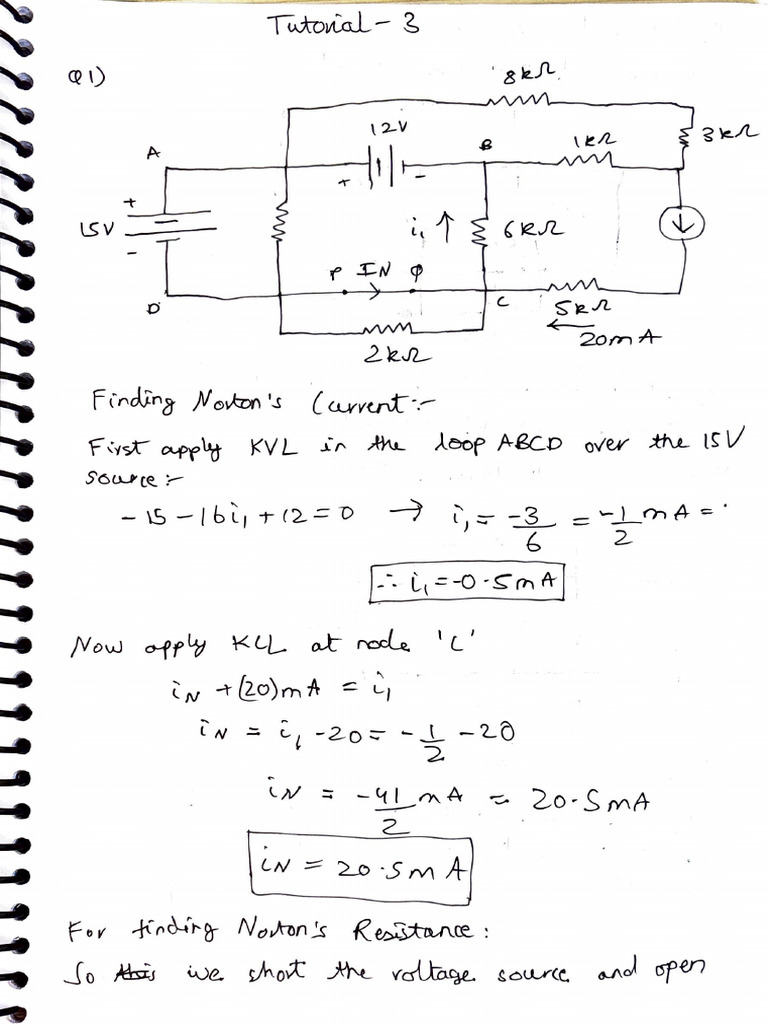 Tutorial - 3
Q1)
8kΩ
12V
3kΩ
1kΩ
A
B
+
-
+
15V
-
i₁ ↑
6kΩ
P IN Q
D
C
5kΩ
20mA
2kΩ
Finding Norton's Current:-
First apply KVL in the loop ABCD over the 15V
source:-
-15 - 16i₁ + 12 = 0 → i₁ = -3/6 = -1/2 mA =
∴ i₁ = -0.5mA
Now apply KCL at node 'C'
iN + (20)mA = i₁
iN = i₁ - 20 = -1/2 - 20
iN = -41/2 mA = 20.5mA
iN = 20.5mA
For finding Norton's Resistance:
So we short the voltage source and open